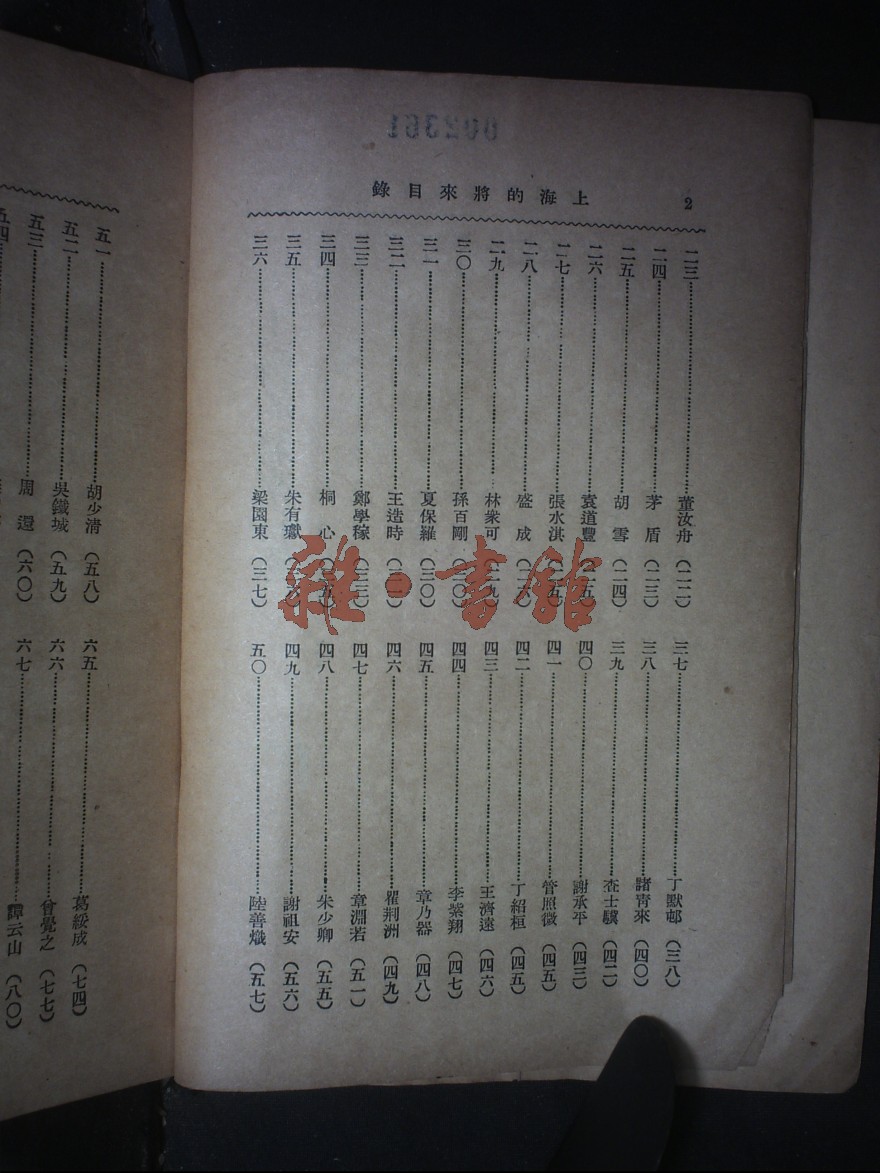 002361
上海的將來目錄 2
二三……董汝舟（二二）
二四……茅盾（二三）
二五……胡雪（二四）
二六……袁道豐（二五）
二七……張水淇（二五）
二八……盛成（二六）
二九……林衆可（二九）
三〇……孫百剛（三〇）
三一……夏保羅（三〇）
三二……王造時
三三……鄭學稼（三三）
三四……桐心（三五）
三五……朱有瓛（三六）
三六……梁園東（三七）
三七……丁默邨（三八）
三八……諸青來（四〇）
三九……查士驥（四二）
四〇……謝承平（四三）
四一……管照微（四五）
四二……丁紹桓（四五）
四三……王濟遠（四六）
四四……李紫翔（四七）
四五……章乃器（四八）
四六……瞿荆洲（四九）
四七……章淵若（五一）
四八……朱少卿（五五）
四九……謝祖安（五六）
五〇……陸善熾（五七）
五一……胡少清（五八）
五二……吳鐵城（五九）
五三……周還（六〇）
五四
六五……葛綏成（七四）
六六……曾覺之（七七）
六七……譚云山（八〇）
雜·書館